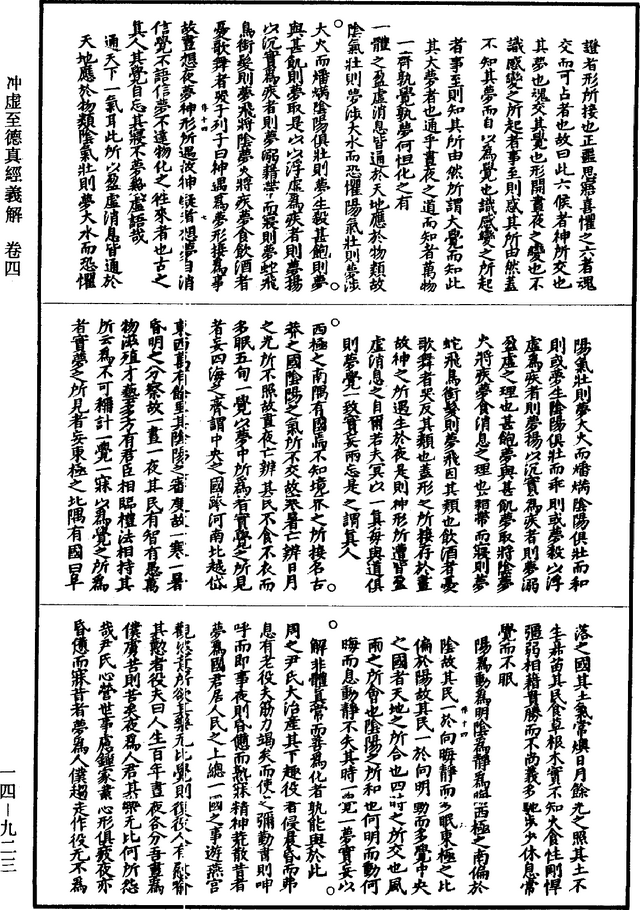 證者形所接也正噩思寤喜懼之六者魂
交而可占者也故曰此六候者神所交也
其夢也魂交其覺也形開晝夜之變也不
識感變之所起者事至則感其所由然蓋
不知其夢而自以為覺也識感變之所起
者事至則知其所由然所謂大覺而知此
其大夢者也通乎晝夜之道而知者萬物
一齊孰覺孰夢何怛化之有
一體之盈虛消息皆通於天地應於物類故
陰氣壯則夢涉大水而恐懼陽氣壯則夢涉
大火而燔焫陰陽俱壯則夢生殺甚飽則夢
與甚飢則夢取是以以浮虛為疾者則夢揚
以沉實為疾者則夢溺藉帶而寢則夢蛇飛
鳥銜髮則夢飛將陰夢火將疾夢食飲酒者
憂歌舞者哭子列子曰神遇為夢形接為事
故晝想夜夢神形所遇故神凝者想夢自消
信覺不語信夢不達物化之往來者也古之
真人其覺自忘其寢不夢幾虛語哉
通天下一氣耳此所以盈虛消息皆通於
天地應於物類陰氣壯則夢大水而恐懼
陽氣壯則夢大火而燔焫陰陽俱壯而和
則或夢生陰陽俱壯而乖則或夢殺以浮
虛為疾者則夢揚以沉實為疾者則夢溺
盈虛之理也甚飽夢與甚飢夢取將陰夢
火將疾夢食消息之理也藉帶而寢則夢
蛇飛鳥銜髮則夢飛因其類也飲酒者憂
歌舞者哭反其類也蓋形之所接存於晝
故神之所遇生於夜是則神形所遭皆盈
虛消息之自爾若夫冥以一真每與道俱
則夢覺一致實妄兩忘是之謂真人
西極之南隅有國焉不知境界之所接名古
莽之國陰陽之氣所不交故寒暑亡辨日月
之光所不照故晝夜亡辨其民不食不衣而
多眠五旬一覺以夢中所為者實覺之所見
者妄四海之齊謂中央之國跨河南北越岱
東西萬有餘里其陰陽之審度故一寒一暑
昏明之分察故一晝一夜其民有智有愚萬
物滋殖才藝多方有君臣相臨禮法相持其
所云為不可稱計一覺一寐以為覺之所為
者實夢之所見者妄東極之北隅有國曰阜
落之國其土氣常燠日月餘光之照其土不
生嘉苗其民食草根木實不知火食性剛悍
彊弱相藉貴勝而不尚義多馳步少休息常
覺而不眠
陽為動為明陰為靜為晦西極之南偏於
陰故其民一於向晦靜而多眠東極之北
偏於陽故其民一於向明動而多覺中央
之國者天地之所合也四時之所交也風
雨之所會也陰陽之所和也向明而動向
晦而息動靜不失其時一覺一夢實妄以
解非體真常而善為化者孰能與於此
周之尹氏大治產其下趣役者侵晨昏而弗
息有老役夫筋力竭矣而使之彌勤晝則呻
呼而即事夜則昏憊而熟寐精神荒散昔昔
夢為國君居人民之上總一國之事遊燕宮
觀恣意所欲其樂無比覺則復役人有慰喻
其懃者役夫曰人生百年晝夜各分吾晝為
僕虜苦則苦矣夜為人君其樂无比何所怨
哉尹氏心營世事慮鍾家業心形俱疲夜亦
昏憊而寐昔昔夢為人僕趨走作役无不為
冲虛至德真經義解 卷四
一四—九二三